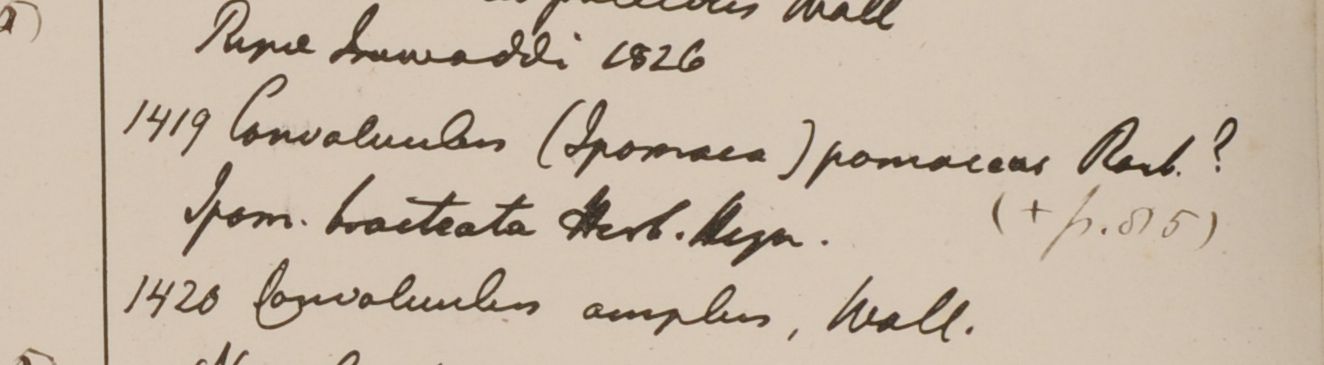 Wall
Ripae Irawaddi 1826
1419 Convolvulus (Ipomaea) pomaceus Roxb. ?
Ipom. bracteata Herb. Heyn. (+ p. 85)
1420 Convolvulus amplus, Wall.